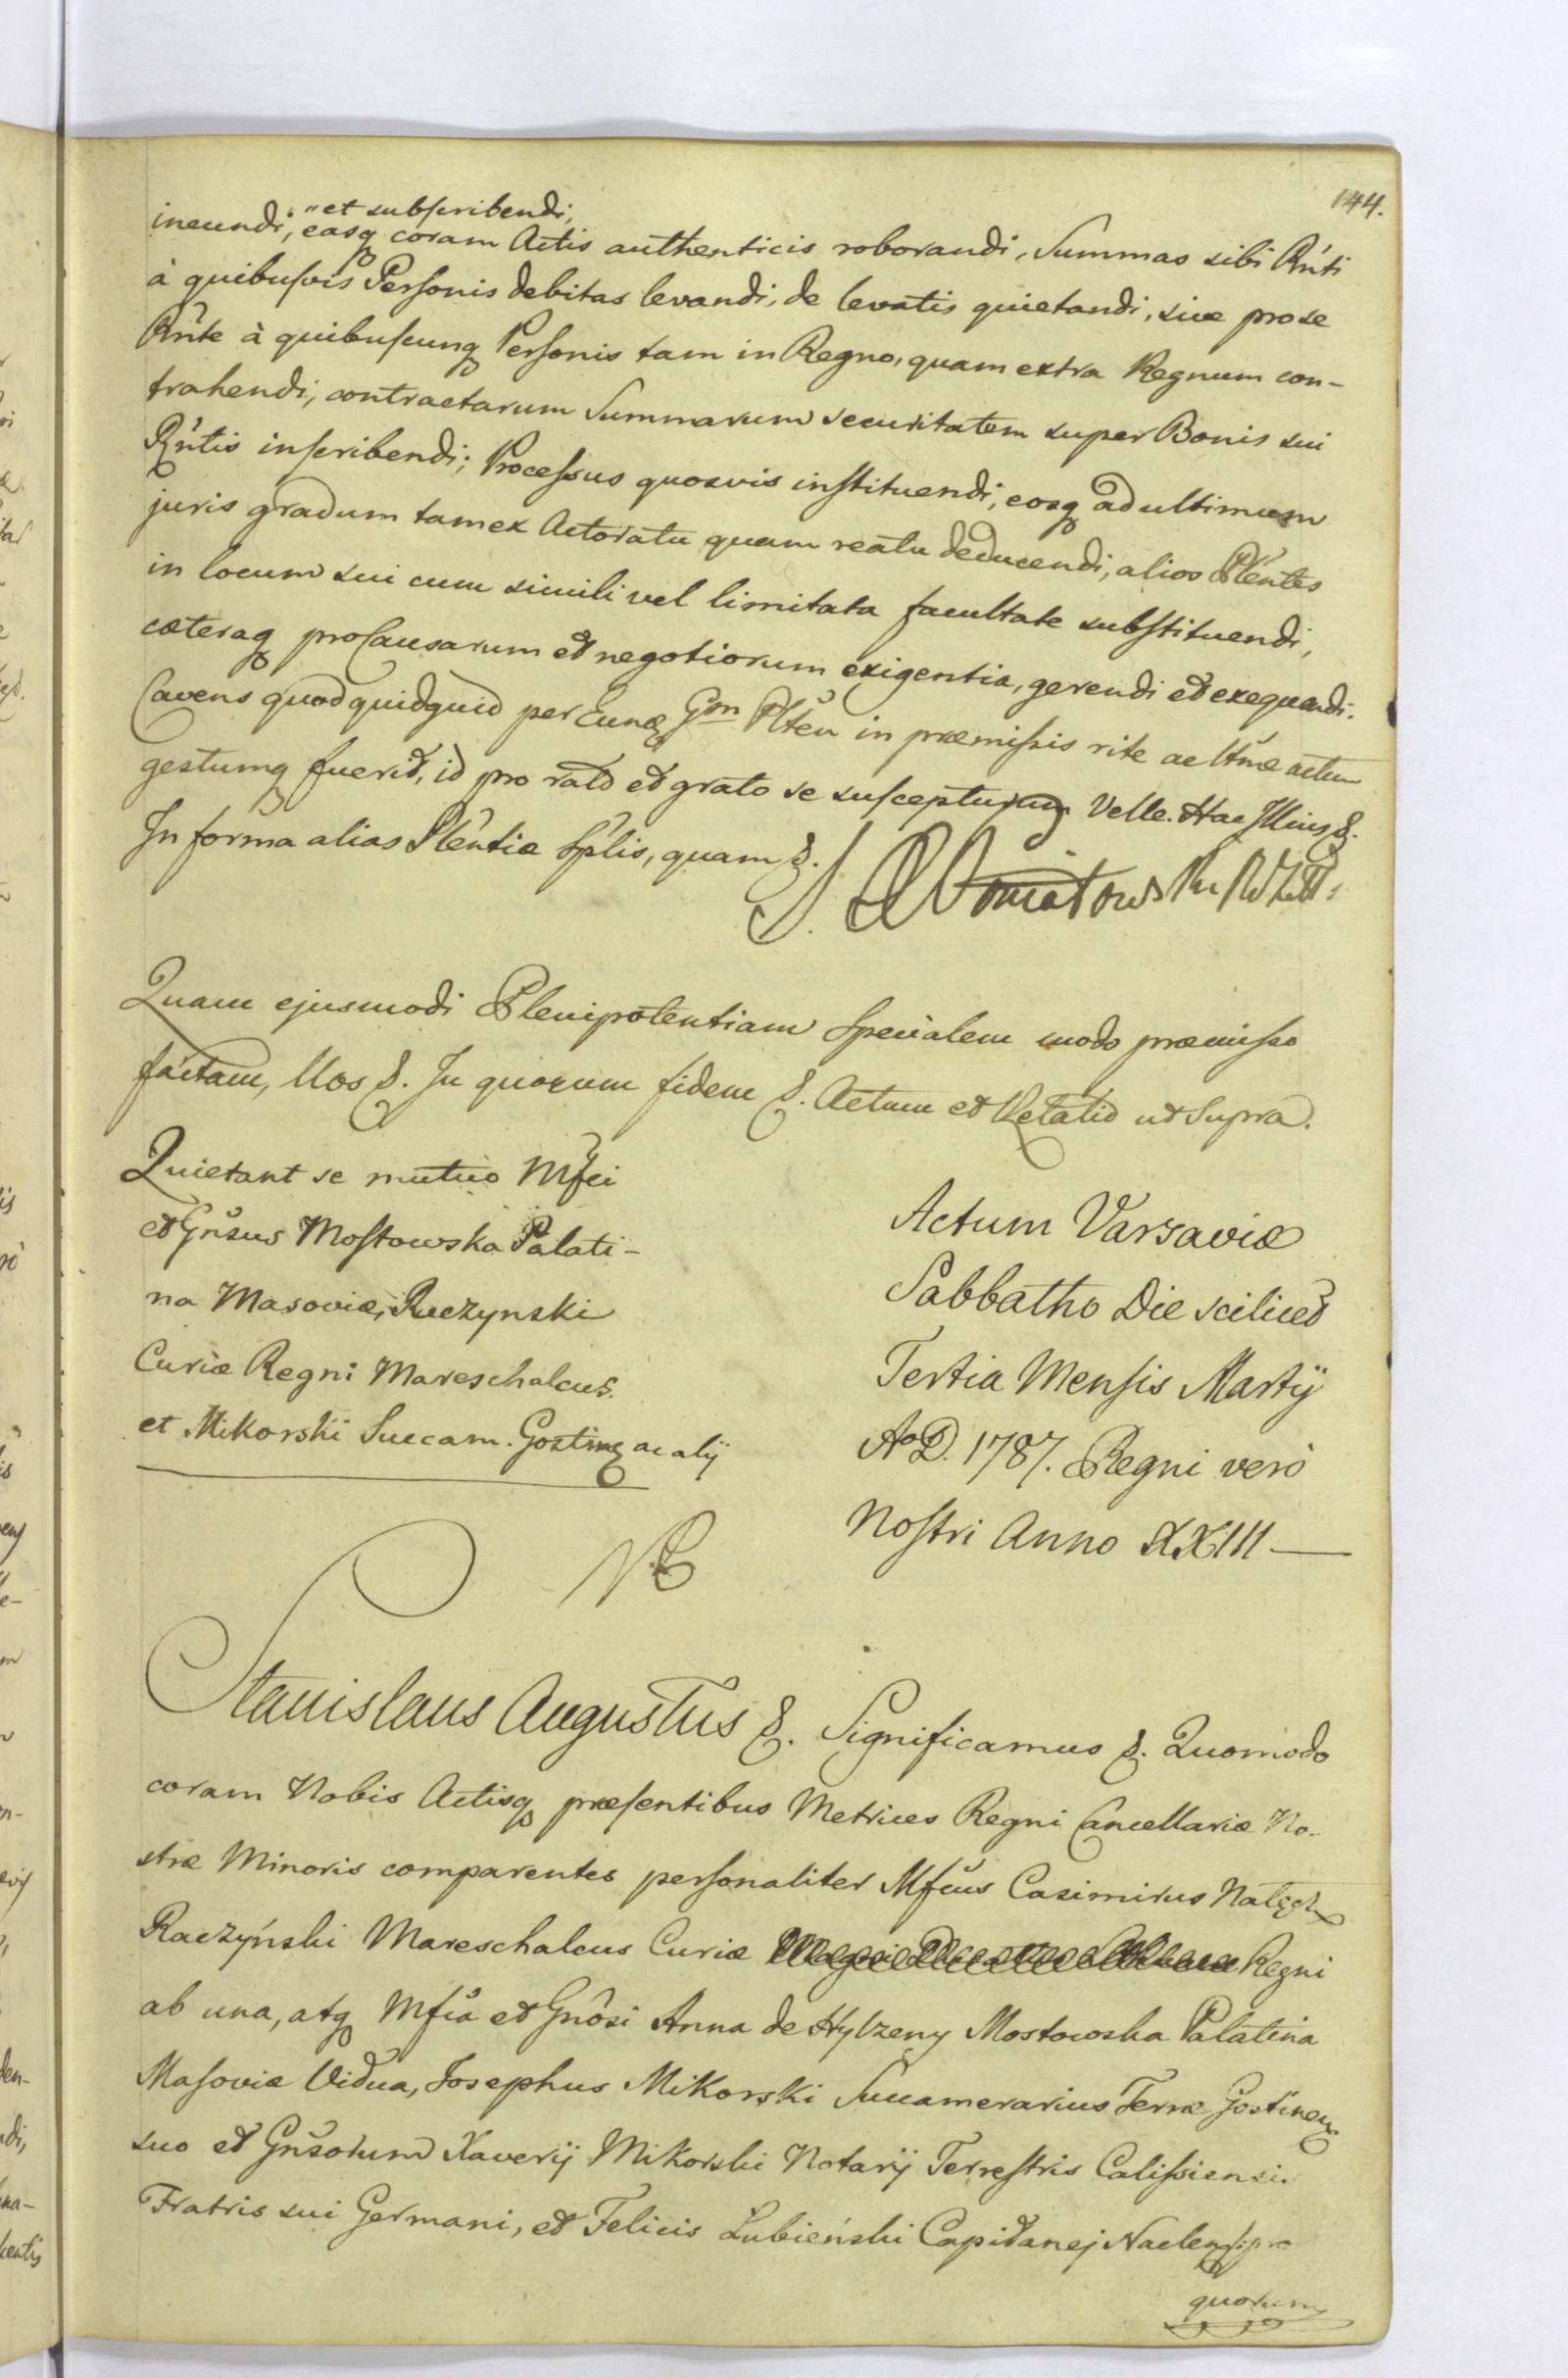 144.
"et subscribendi,
ineundi, easq coram Actis authenticis roborandi, Summas sibi Rńti
à quibusvis Personis debitas levandi, de levatis quietandi, sive pro se
Rńte à quibuscunq Personis tam in Regno, quam extra Regnum con-
trahendi, contractarum Summarum securitatem super Bonis sui
Rńtis inscribendi; Processus quosvis instituendi, eosq ad ultimum
juris gradum tam ex Actoratu quam reatu deducendi, alios Plentes
in locum sui cum simili vel limitata facultate substituendi,
cæteraq pro Causarum et negotiorum exigentia, gerendi et exequendi.
Cavens quod quidquid per Eunq Gsm Pltem in præmissis rite ac ltme actum
gestumq fuerit, id pro rato et grato se suscepturum Velle. Hac Illius &.
In forma alias Plentiæ Splis, quam &.
S. Poniatowski
Quam ejusmodi Plenipotentiam Specialem modo præmisso
factam, Nos &. In quorum fidem &. Actum et Relatio ut Supra.
Quietant se mutuo Mfci
et Gnsus Mostowska Palati-
na Masoviæ, Raczynski
Curiæ Regni Mareschalcus
et Mikorski Succam. Gostinq ac alij
Actum Varsaviæ
Sabbatho Die scilicet
Tertia Mensis Martij
Ao D. 1787. Regni verò
Nostri Anno XXIII —
Stanislaus Augustus &. Significamus &. Quomodo
coram Nobis Actisq præsentibus Metrices Regni Cancellariæ No-
stræ Minoris comparentes personaliter Mfcus Casimirus Nałęcz
Raczyński Mareschalcus Curiæ Regni
ab una, atq Mfca et Gnosi Anna de Hylzeny Mostowska Palatina
Masoviæ Vidua, Josephus Mikorski Succamerarius Terræ Gostinen
suo et Gnsorum Xaverij Mikorski Notarij Terrestris Calissiensis
Fratris sui Germani, et Felicis Lubieński Capitanei Naclen pro
quorum